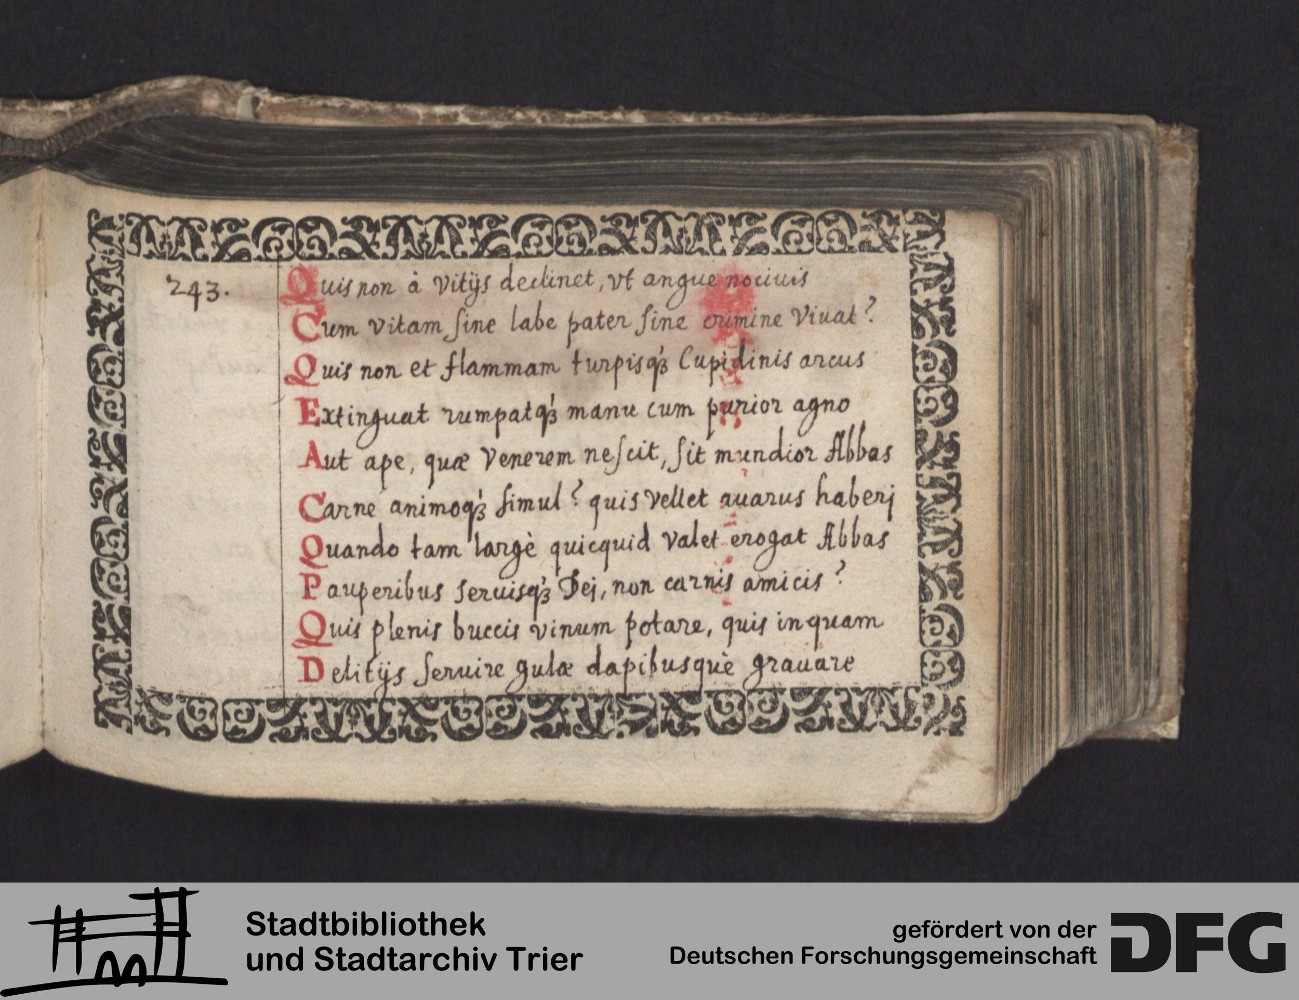 243.
Quis non à vitijs declinet, vt angue nociuis
Cum vitam sine labe pater sine crimine viuat?
Quis non et flammam turpisq́ꝫ Cupidinis arcus
Extinguat rumpatq́ꝫ manu cum purior agno
Aut ape, quæ Venerem nescit, sit mundior Abbas
Carne animoq́ꝫ simul? quis vellet auarus haberj
Quando tam largè quicquid valet erogat Abbas
Pauperibus seruisq́ꝫ Dej, non carnis amicis?
Quis plenis buccis vinum potare, quis inquam
Delitijs seruire gulæ dapibusquè grauare
Stadtbibliothek
und Stadtarchiv Trier
gefördert von der
Deutschen Forschungsgemeinschaft
DFG